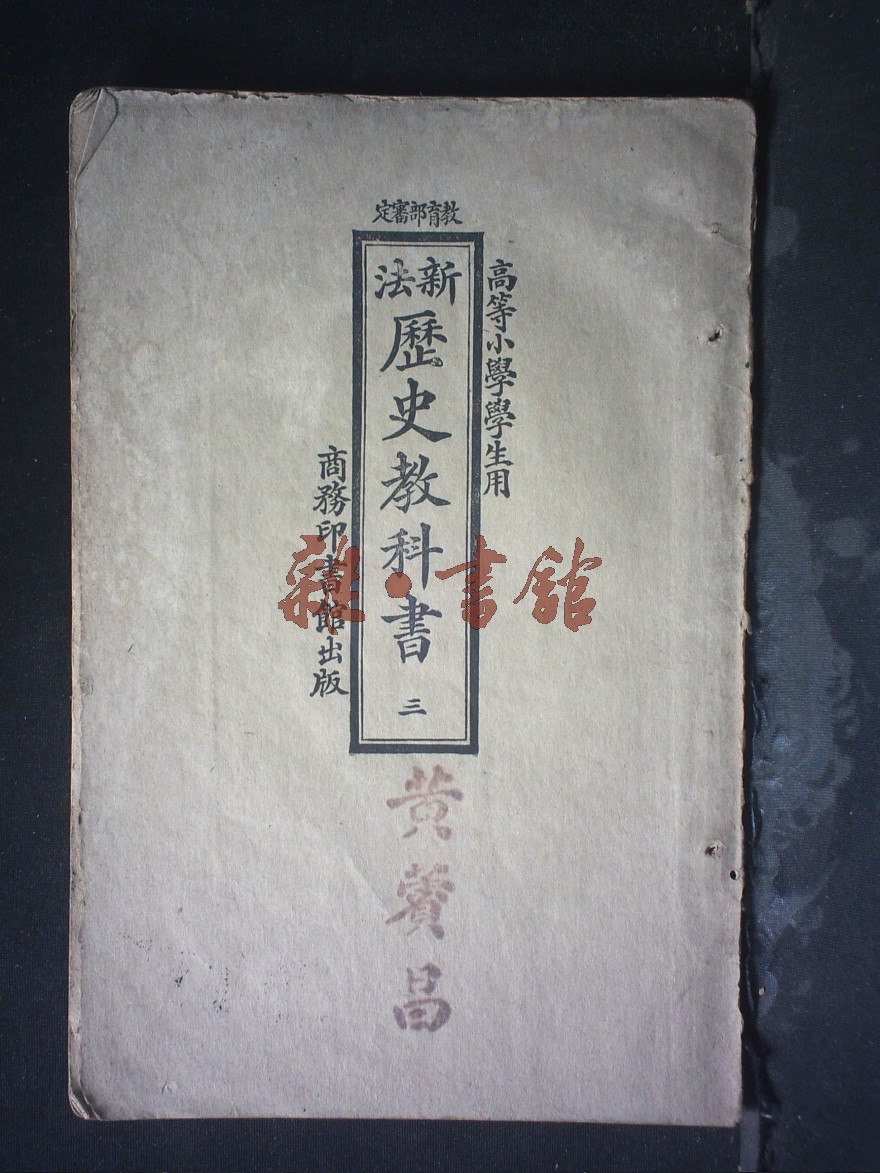 教育部審定
高等小學學生用
新法
歷史教科書
三
商務印書館出版
雜·書館
黄賫昌